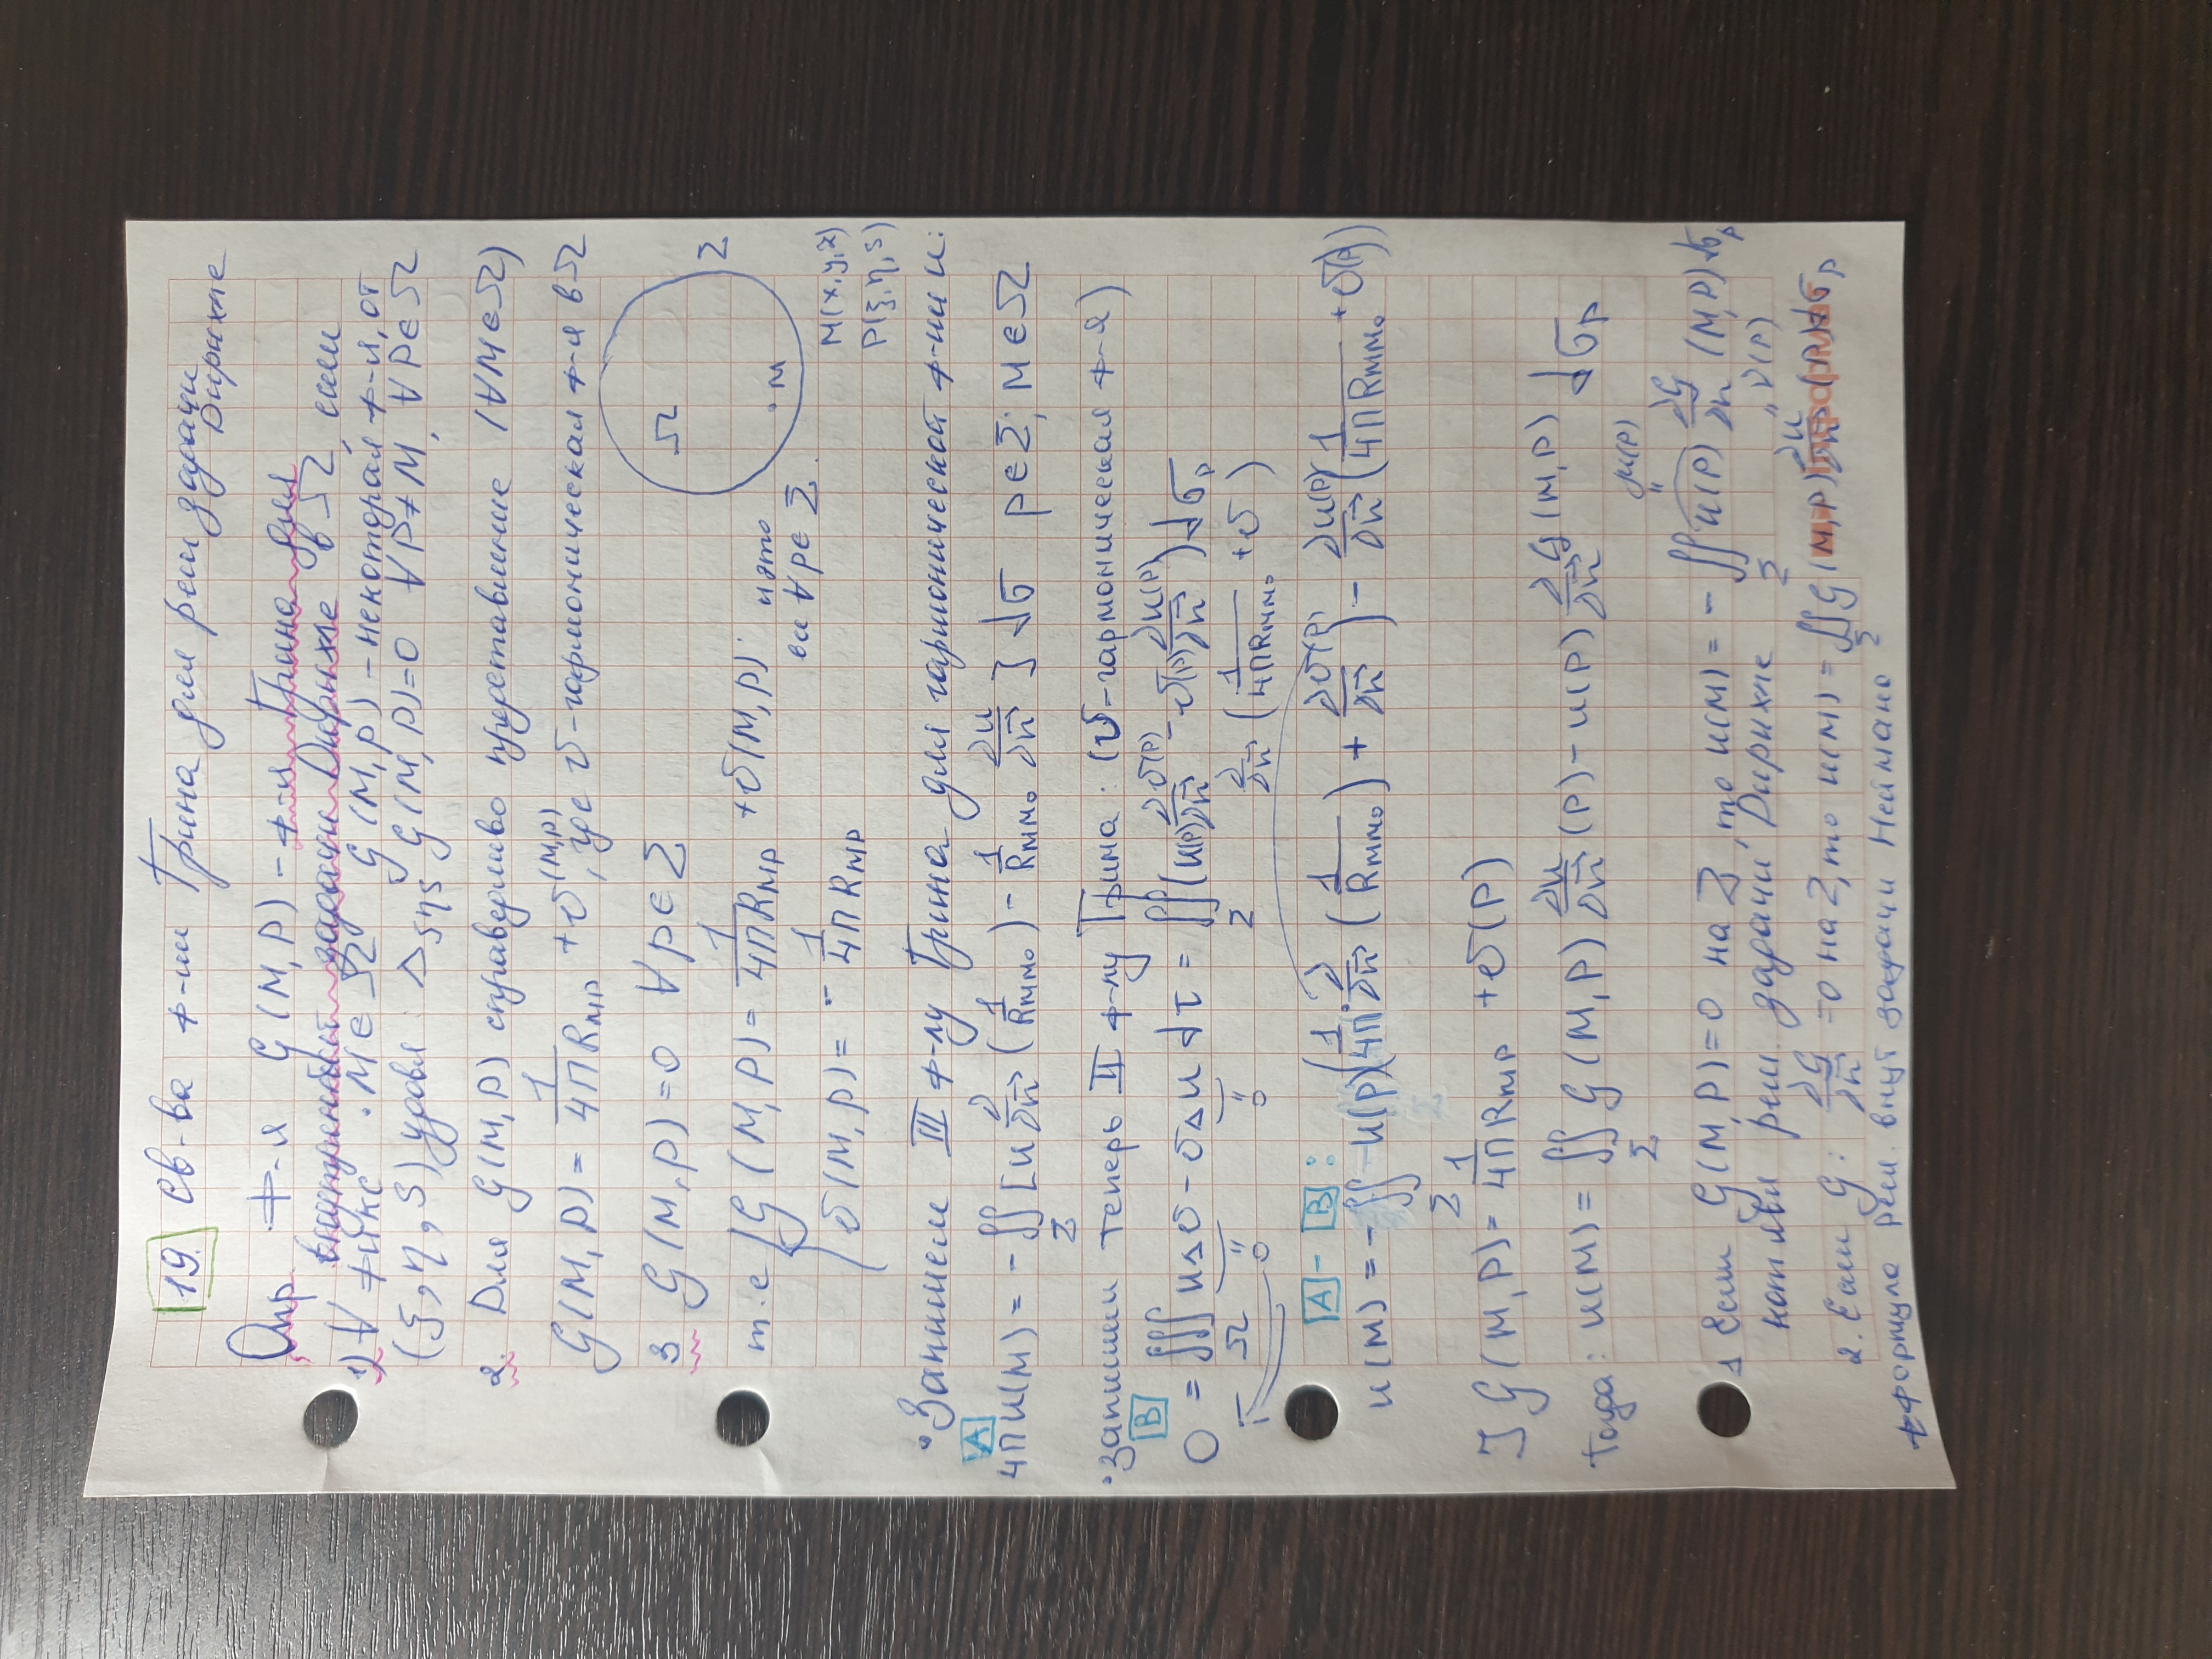 19. Св-ва ф-ии Грина для реш задачи Дирихле
Опр Ф-я G(M,P) - ф-я Грина для
внутренней задачи Дирихле в Ω, если
1) ∀ фикс. M∈Ω G(M,P) - некоторая ф-я, от
(ξ, η, ζ) удовл Δξηζ G(M,P)=0 ∀P≠M, ∀P∈Ω
2. Для G(M,P) справедливо представление (∀M∈Ω)
G(M,P) = 1/4πR_MP + v(M,P), где v-гармоническая ф-я в Ω
3 G(M,P)=0 ∀P∈Σ
Ω
Σ
M
т.е { G(M,P) = 1/4πR_MP + v(M,P)
v(M,P) = - 1/4πR_MP
∀P∈Σ
M(x,y,z)
P(ξ,η,ζ)
• Запишем III ф-лу Грина для гармонической ф-ии u:
A
4πu(M) = - ∬_Σ [u ∂/∂n⃗ (1/R_MM₀) - 1/R_MM₀ ∂u/∂n⃗] dσ P∈Σ; M∈Ω
• Запишем теперь II ф-лу Грина: (v-гармоническая ф-я)
B
0 = ∭_Ω uΔv - vΔu dτ = ∬_Σ (u(P) ∂v(P)/∂n⃗ - v(P) ∂u(P)/∂n⃗) dσ_P
=0 =0
∂/∂n⃗ (1/4πR_MM₀ + v)
A - B:
u(M) = - ∬_Σ u(P)(1/4π · ∂/∂n⃗ (1/R_MM₀) + ∂v(P)/∂n⃗) - ∂u(P)/∂n⃗ (1/4πR_MM₀ + v(P))
] G(M,P) = 1/4πR_MP + v(P)
Тогда: u(M) = ∬_Σ G(M,P) ∂u/∂n⃗ (P) - u(P) ∂/∂n⃗ G(M,P) dσ_P
μ(P)
1 Если G(M,P)=0 на Σ, то u(M) = - ∬_Σ u(P) ∂G/∂n (M,P) dσ_P
реш. задачи Дирихле
ν(P)
2. Если G: ∂G/∂n⃗ =0 на Σ, то u(M) = ∬_Σ G(M,P) ∂u/∂n⃗ dσ_P
формула реш. внут задачи Неймана